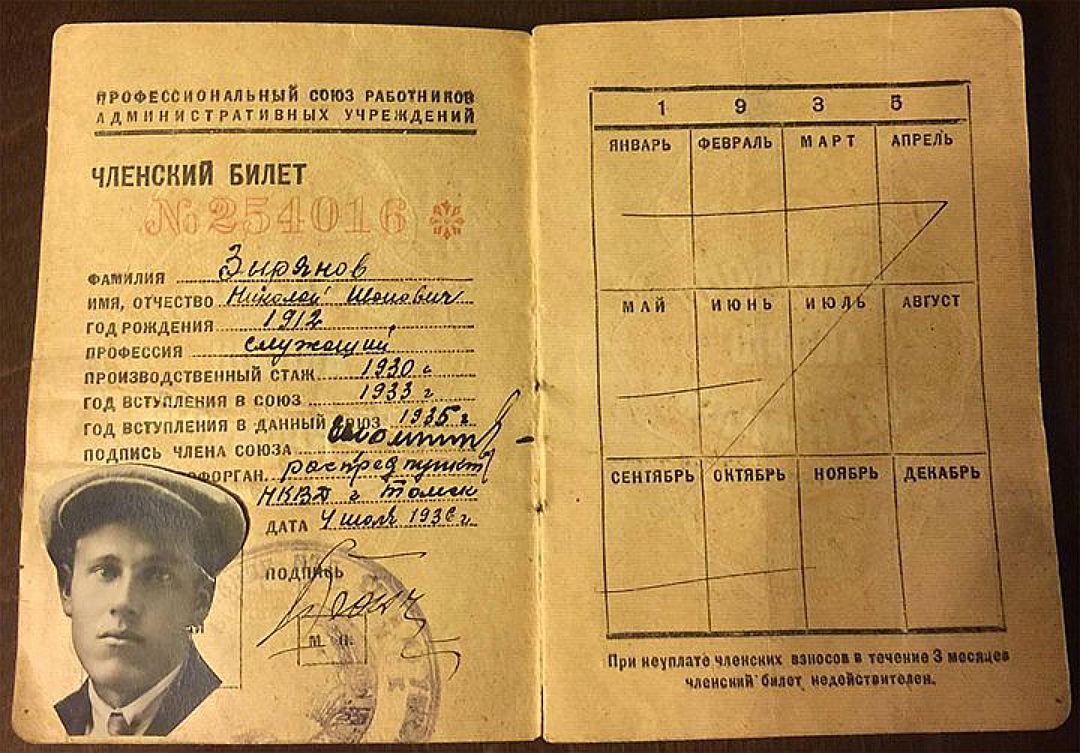 ПРОФЕССИОНАЛЬНЫЙ СОЮЗ РАБОТНИКОВ
АДМИНИСТРАТИВНЫХ УЧРЕЖДЕНИЙ
ЧЛЕНСКИЙ БИЛЕТ
№ 254016
ФАМИЛИЯ Зырянов
ИМЯ, ОТЧЕСТВО Николай
ГОД РОЖДЕНИЯ 1912
ПРОФЕССИЯ служащий
ПРОИЗВОДСТВЕННЫЙ СТАЖ 1930 г
ГОД ВСТУПЛЕНИЯ В СОЮЗ 1933 г
ГОД ВСТУПЛЕНИЯ В ДАННЫЙ СОЮЗ 1935 г.
ПОДПИСЬ ЧЛЕНА СОЮЗА
ПРОФОРГАН. распред пункт
НКВД г Томск
ДАТА 4 июля 1936 г.
ПОДПИСЬ
М. П.
1 9 3 5
ЯНВАРЬ ФЕВРАЛЬ МАРТ АПРЕЛЬ
МАЙ ИЮНЬ ИЮЛЬ АВГУСТ
СЕНТЯБРЬ ОКТЯБРЬ НОЯБРЬ ДЕКАБРЬ
При неуплате членских взносов в течение 3 месяцев
членский билет недействителен.